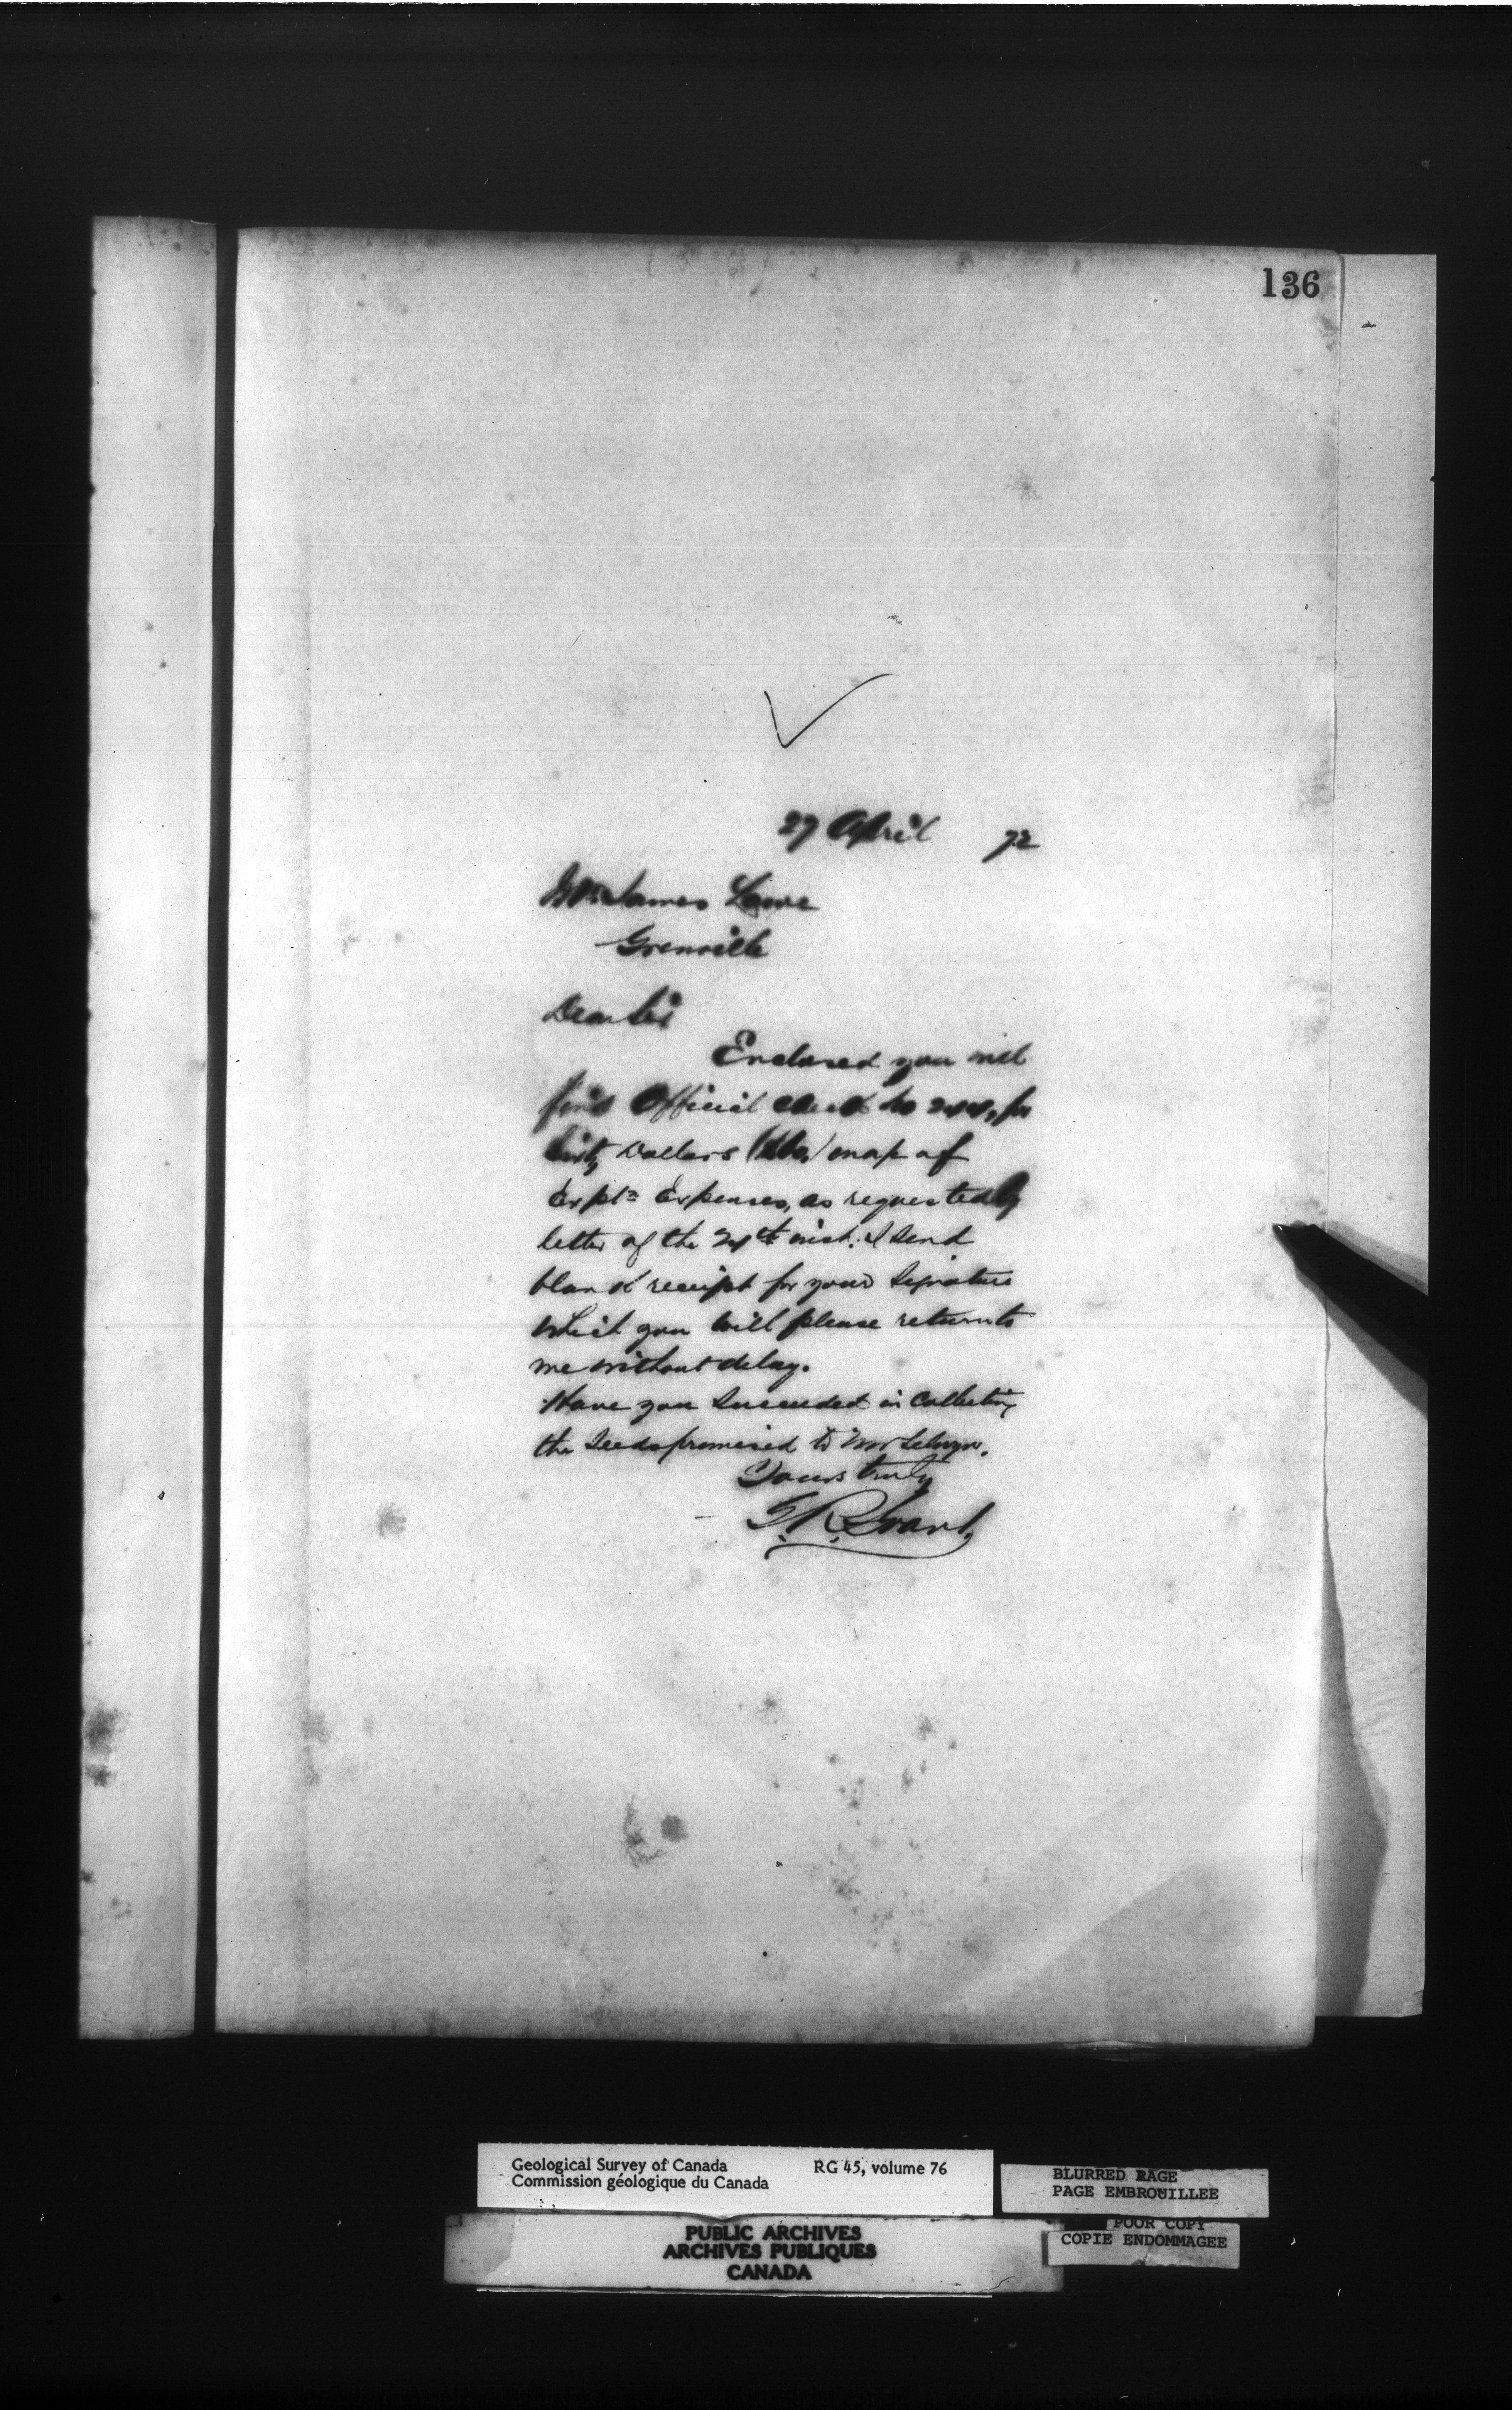 136
27 April 72
Mr James Lowe
Grenville
Dear Sir
Enclosed you will
find Official check No for
Dollars of
Expln Expenses, as requested by
letter of the 24th inst. I send
blank receipt for your Signature
which you will please return to
me without delay.
Have you Succeeded in Collecting
the Seeds promised to Mr Selwyn.
Yours truly
G. R. Grant,
Geological Survey of Canada RG 45, volume 76
Commission géologique du Canada
BLURRED PAGE
PAGE EMBROUILLEE
POOR COPY
COPIE ENDOMMAGEE
PUBLIC ARCHIVES
ARCHIVES PUBLIQUES
CANADA